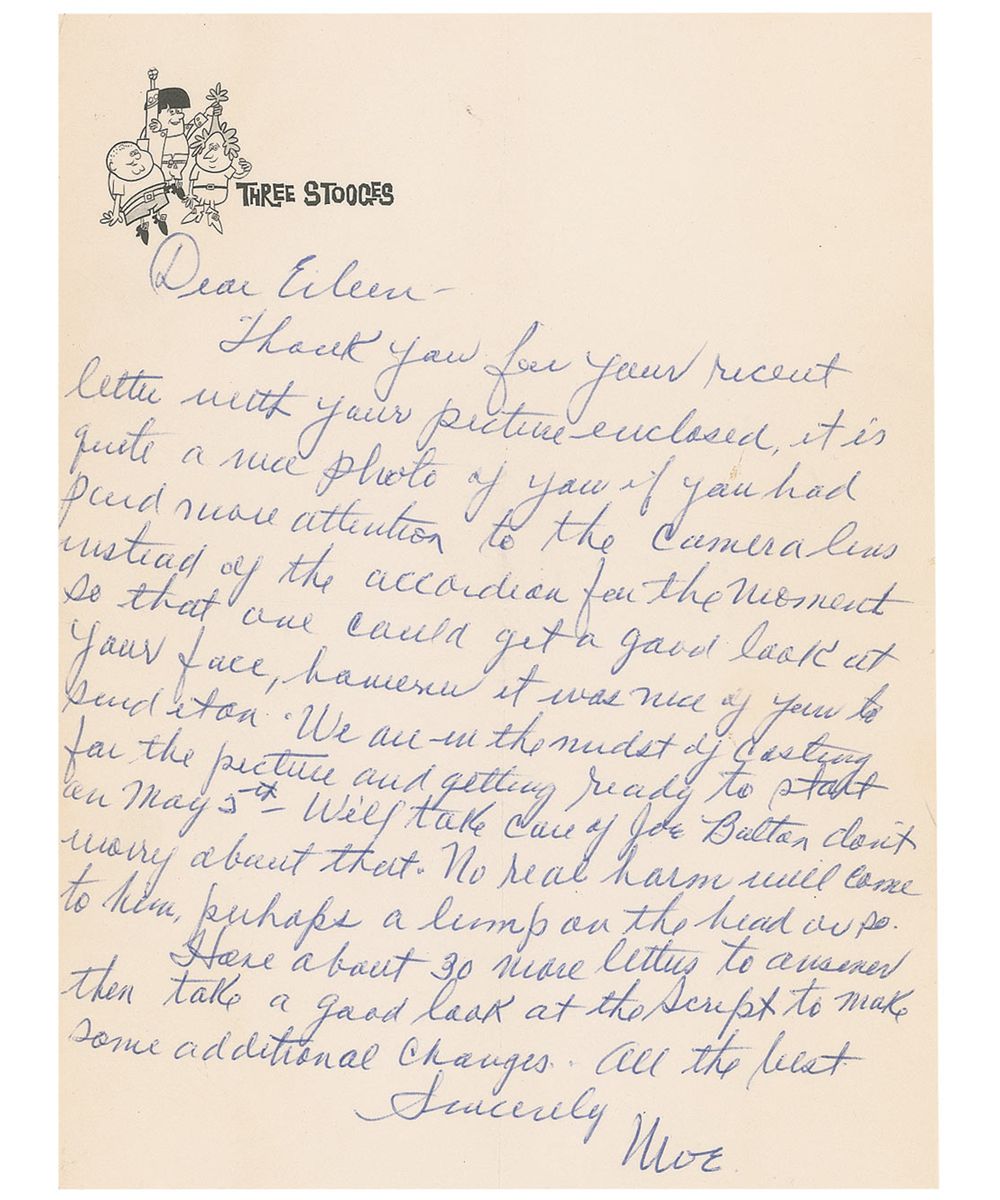 THREE STOOGES
Dear Eileen –
Thank you for your recent
letter with your picture enclosed, it is
quite a nice photo of you if you had
paid more attention to the camera lens
instead of the accordion for the moment
so that one could get a good look at
your face, however it was nice of you to
send it on. We are in the midst of casting
for the picture and getting ready to start
on May 5th – We'll take care of Joe Bolton don't
worry about that. No real harm will come
to him, perhaps a lump on the head or so.
Have about 30 more letters to answer
then take a good look at the script to make
some additional changes. All the best
Sincerely
Moe